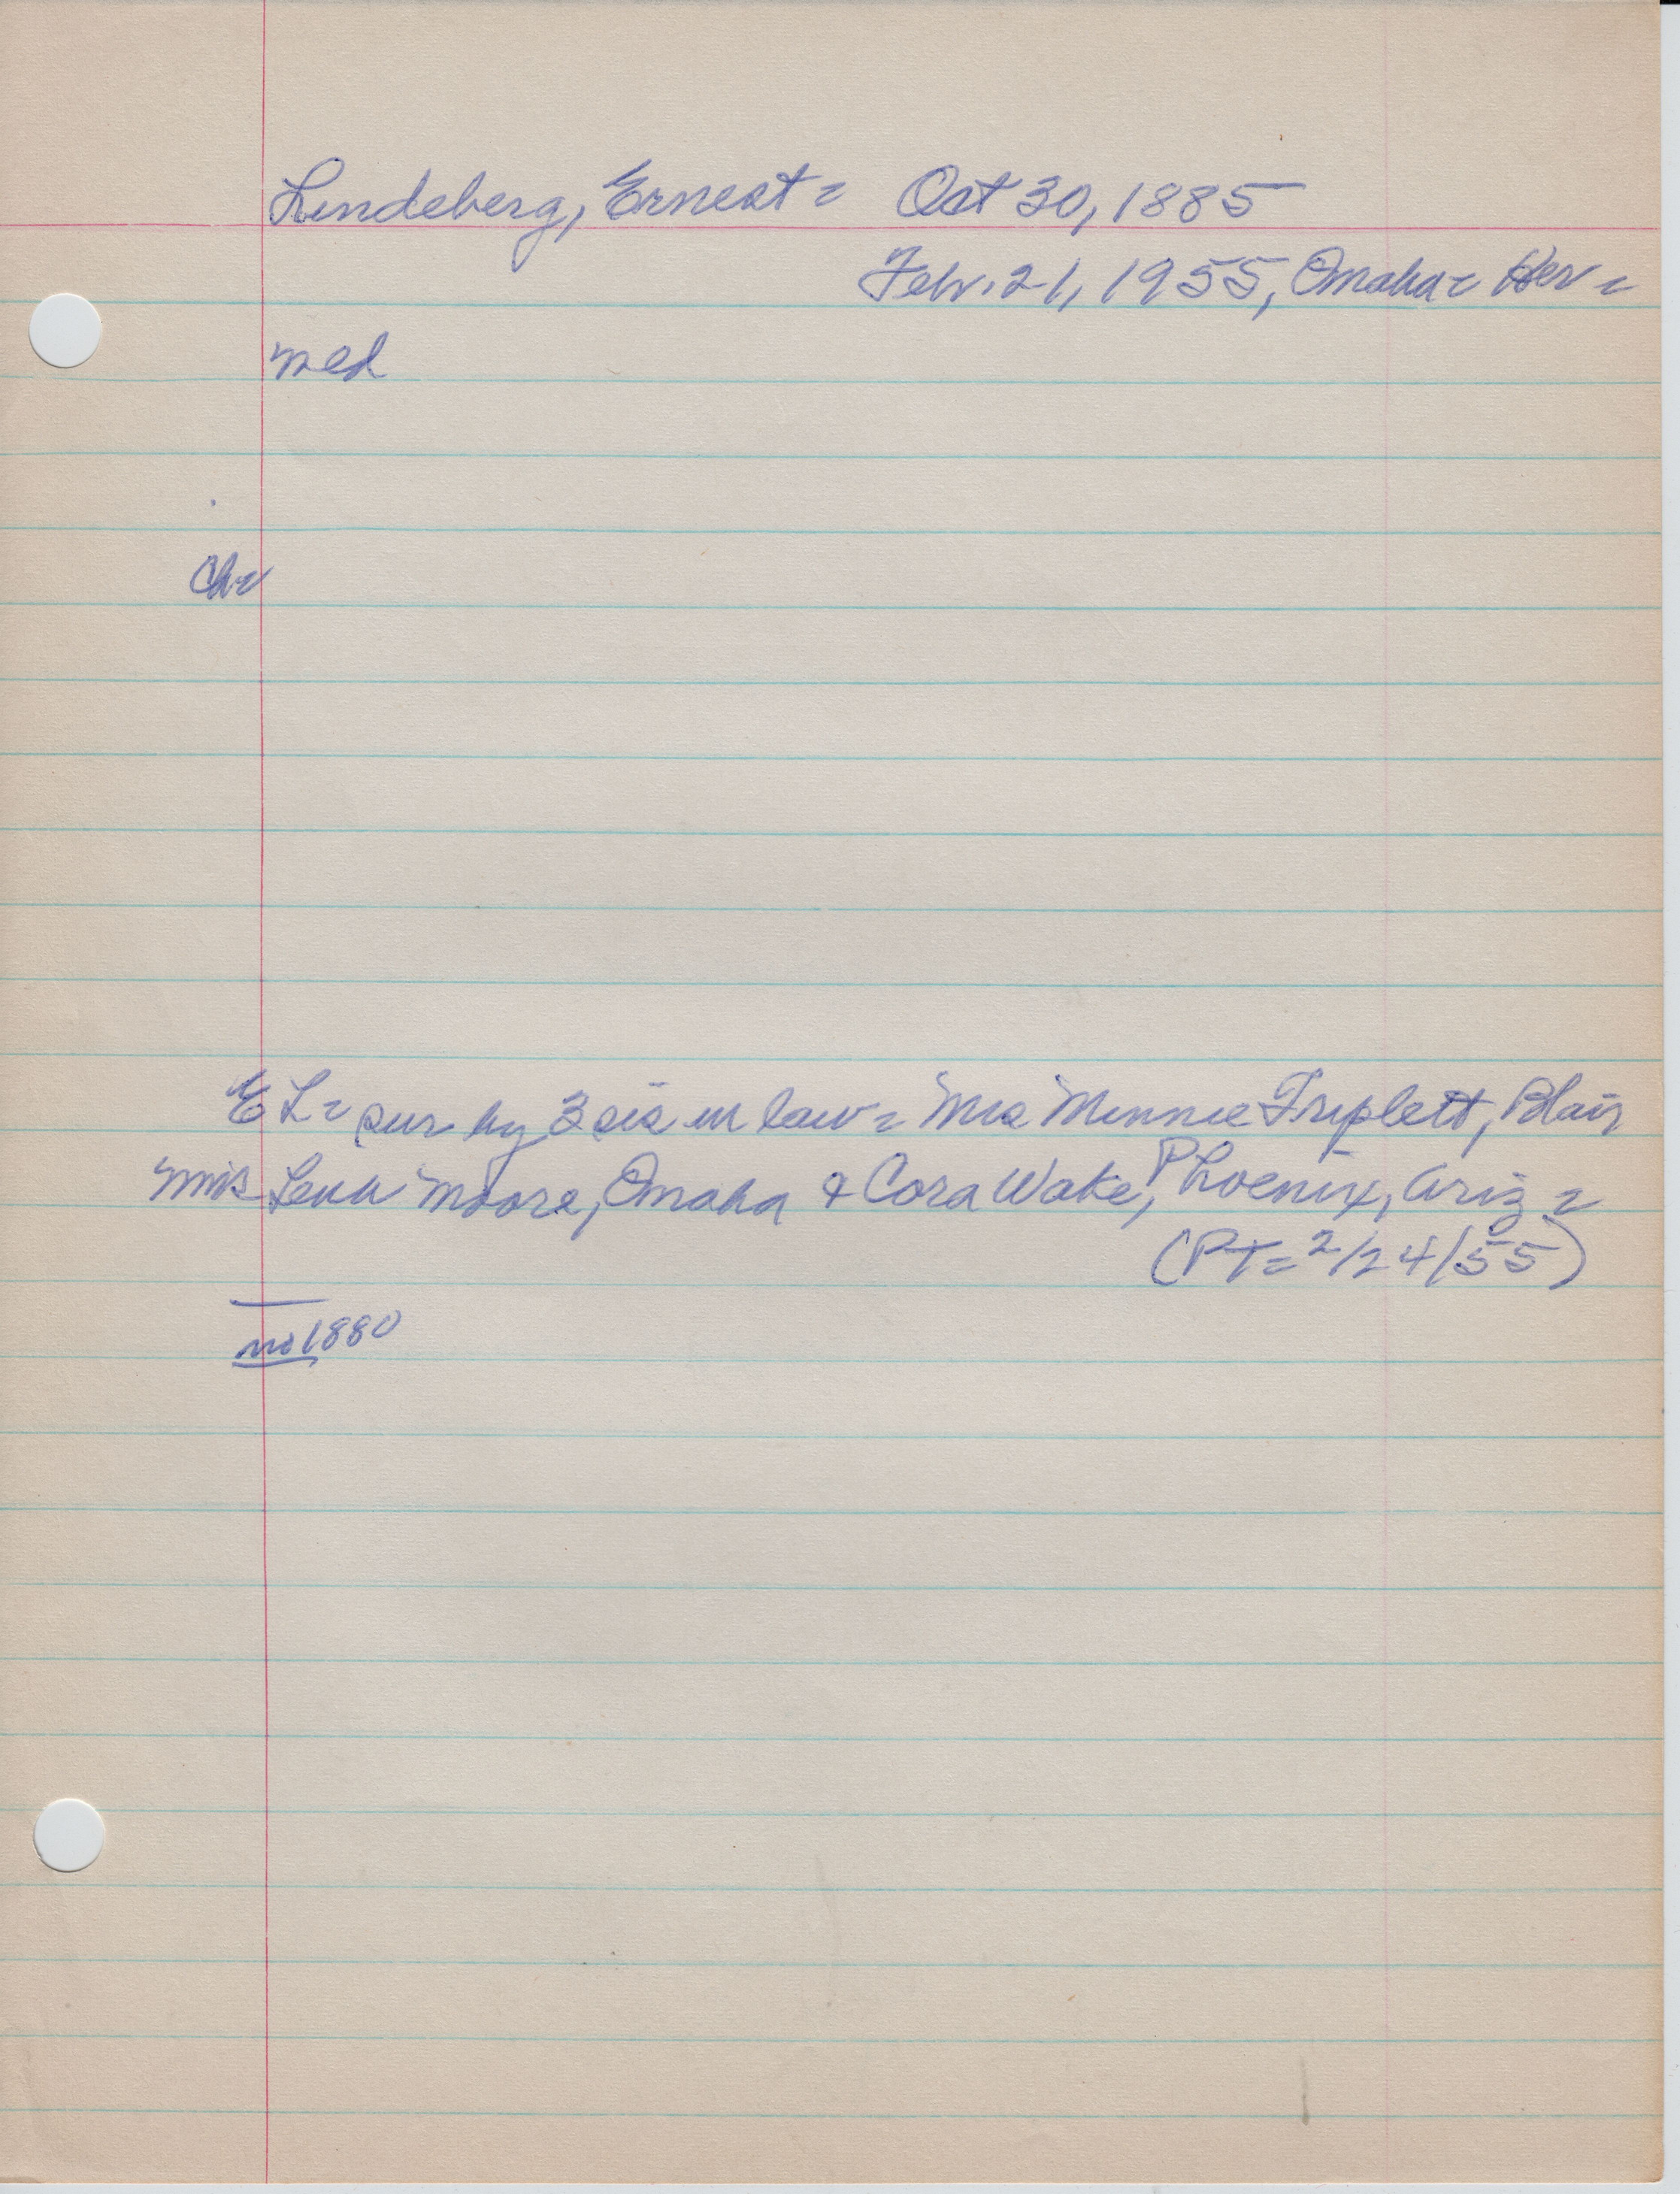 Lindeberg, Ernest = Oct 30, 1885
Febr. 21, 1955, Omaha = Her =
med
Ch =
E L = sur by 3 sis in law = Mrs Minnie Triplett, Blair
Mrs Lena Moore, Omaha & Cora Wake, Phoenix, Ariz =
(PT = 2/24/55)
no 1880